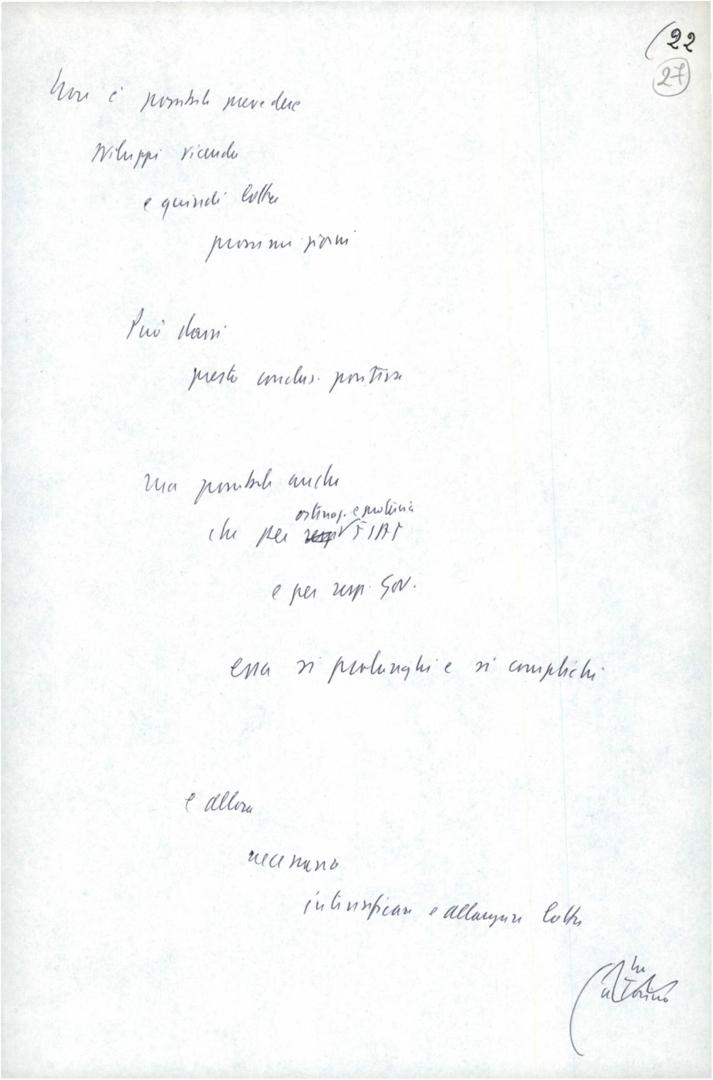 (22
27
Non è possibile prevedere
sviluppi vicenda
e quindi lotta
prossimi giorni
Può darsi
presto conclus. positiva
ma possibile anche
ostinaz. e
che per resp FIAT
e per resp. Gov.
essa si prolunghi e si complichi
e allora
necessario
intensificare e allargare lotta
in
(a Torino